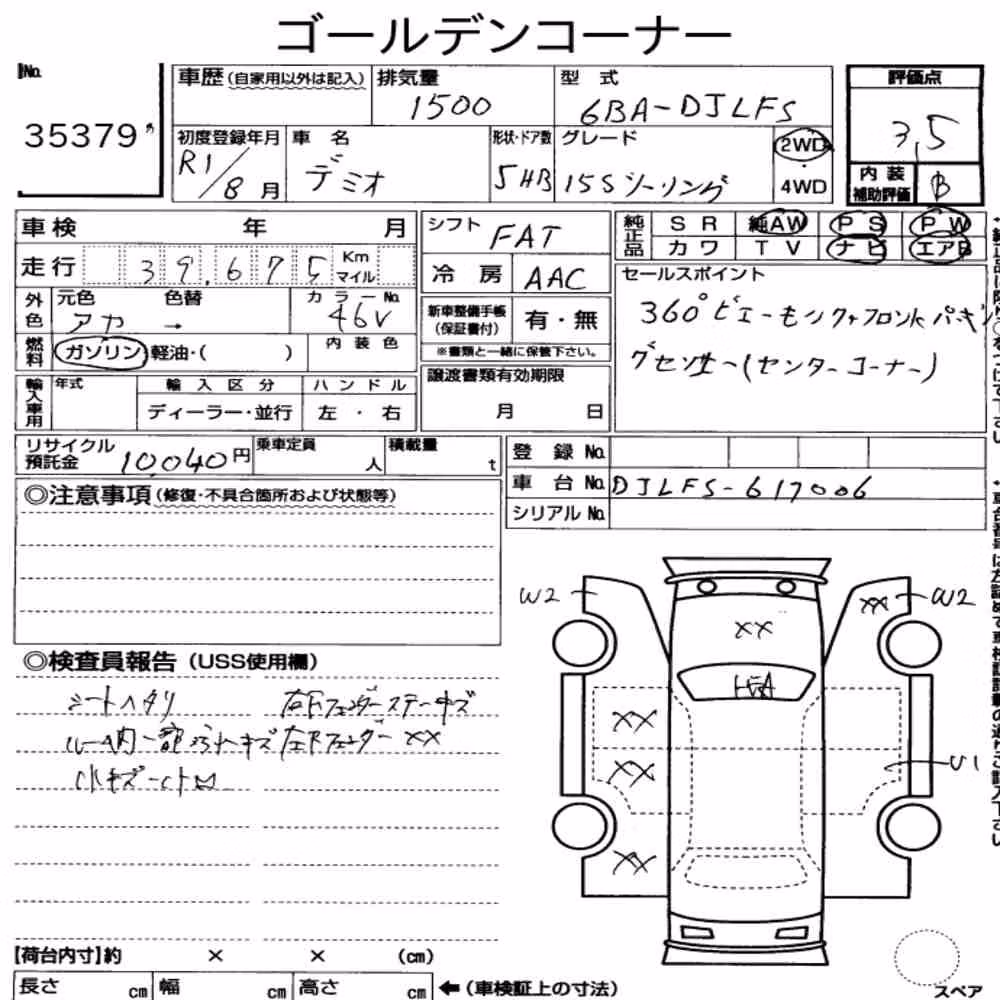 ゴールデンコーナー
No.
35379
車歴(自家用以外は記入) 排気量 型式 評価点
1500 6BA-DJLFS 3.5
初度登録年月 車名 形状・ドア数 グレード 2WD・4WD
R1/8月 デミオ 5HB 15Sツーリング
内装補助評価 B
車検 年 月 シフト FAT 純正品 SR 純AW PS PW
カワ TV ナビ エアB
走行 39,675 Km マイル 冷房 AAC
セールスポイント
外色 元色 色替 カラーNo. 46V
アカ →
新車整備手帳(保証書付) 有・無
※書類と一緒に保管下さい。
360°ビューモニター フロントパーキン
グセンサー(センターコーナー)
燃料 ガソリン 軽油・( ) 内装色
輸入車用 年式 輸入区分 ハンドル 譲渡書類有効期限
ディーラー・並行 左・右 月 日
リサイクル預託金 10,040円 乗車定員 人 積載量 t
登録No.
車台No. DJLFS-617006
シリアルNo.
◎注意事項(修復・不具合箇所および状態等)
◎検査員報告(USS使用欄)
シートヘタリ 右Fフェンダーステーキズ
ルーム内一部ふれキズ 左Fフェンダー XX
小キズ小凹
W2
XX
W2
XX
XX
XX
U1
XX
【荷台内寸】約 × × (cm)
長さ cm 幅 cm 高さ cm ←(車検証上の寸法)
スペア